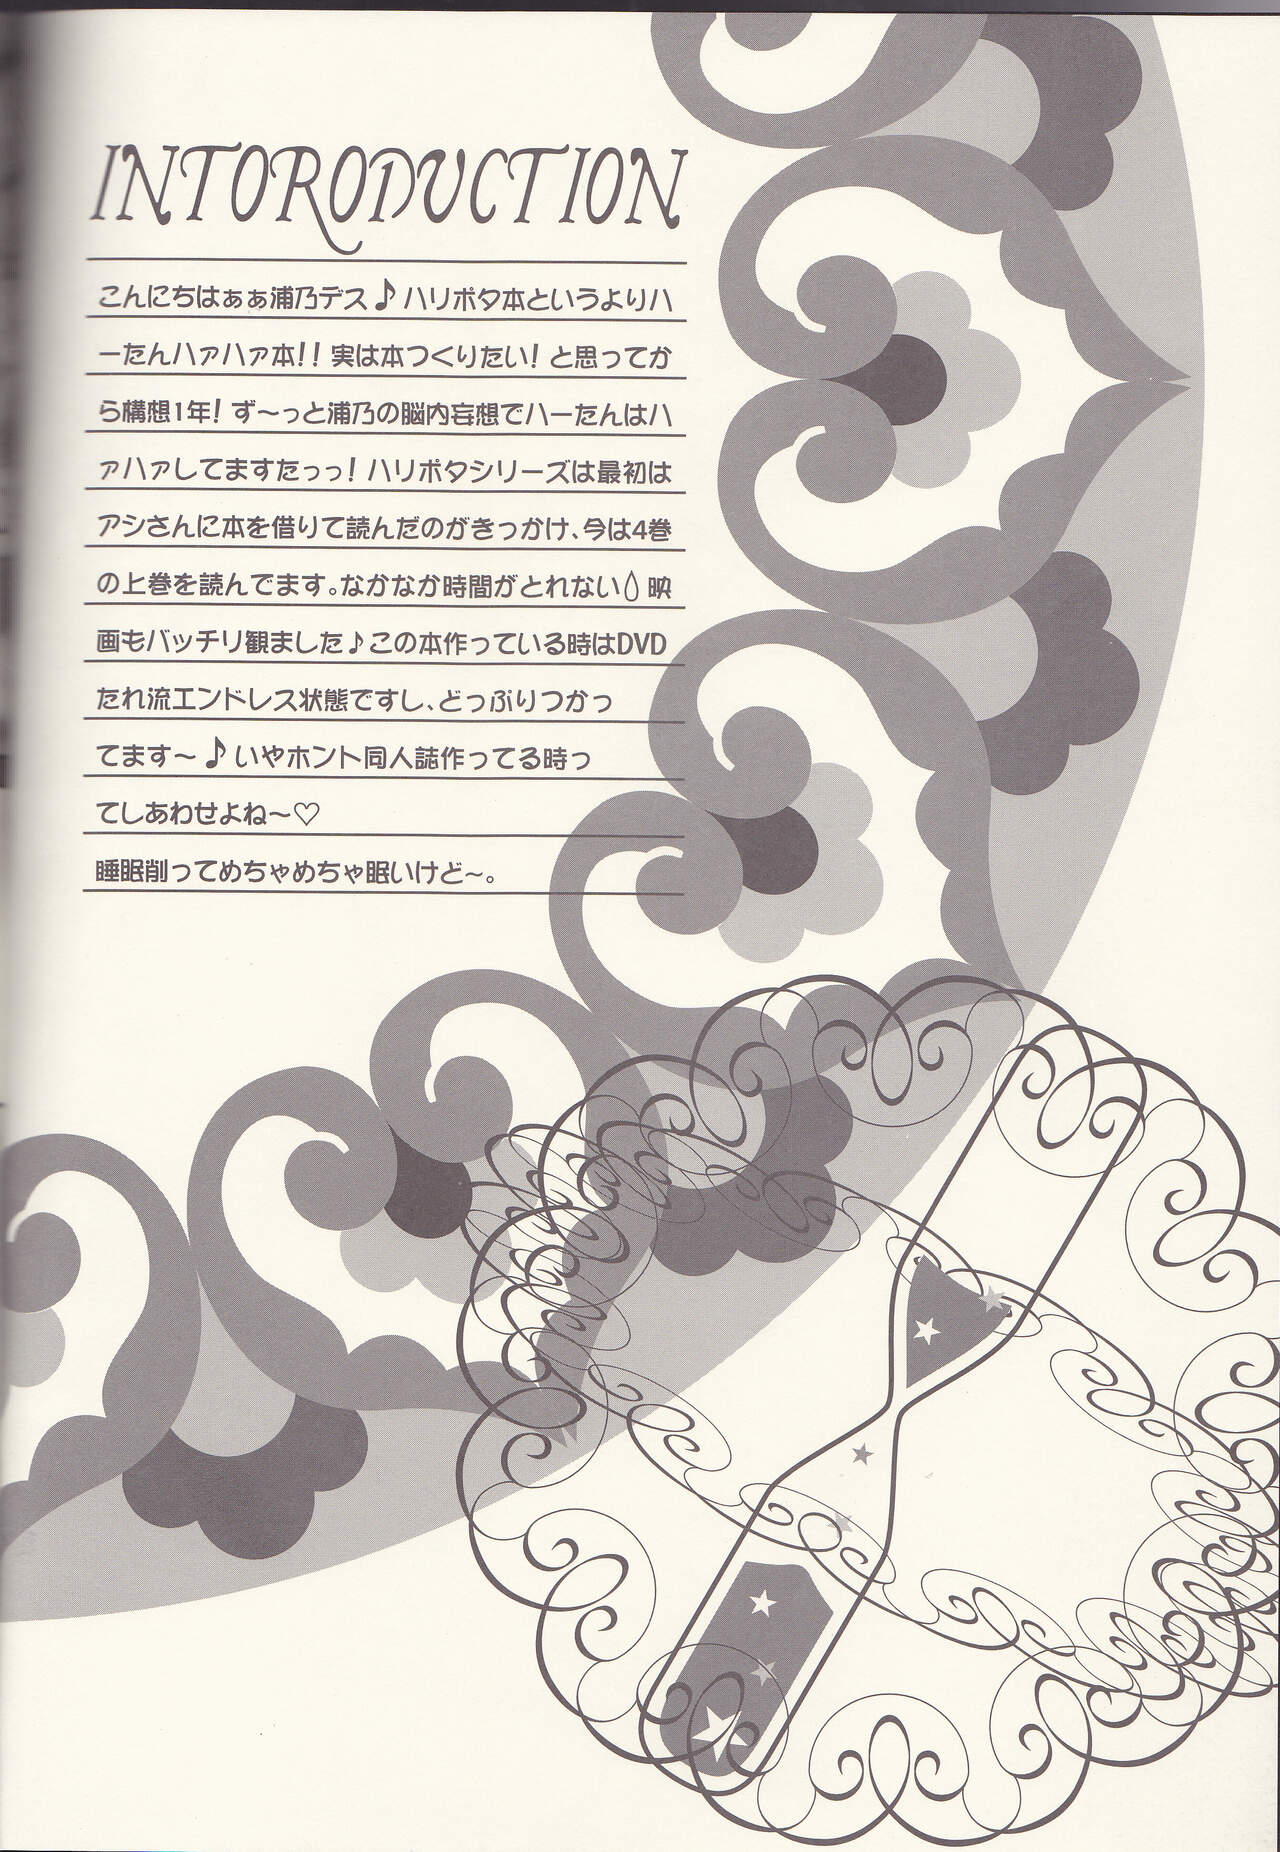 INTORODUCTION
こんにちはぁぁ浦乃デス♪ハリポタ本というよりハ
ーたんハァハァ本!!実は本つくりたい!と思ってか
ら構想1年!ず〜っと浦乃の脳内妄想でハーたんはハ
ァハァしてますたっっ!ハリポタシリーズは最初は
アシさんに本を借りて読んだのがきっかけ、今は4巻
の上巻を読んでます。なかなか時間がとれない💧映
画もバッチリ観ました♪この本作っている時はDVD
たれ流エンドレス状態ですし、どっぷりつかっ
てます〜♪いやホント同人誌作ってる時っ
てしあわせよね〜♡
睡眠削ってめちゃめちゃ眠いけど〜。